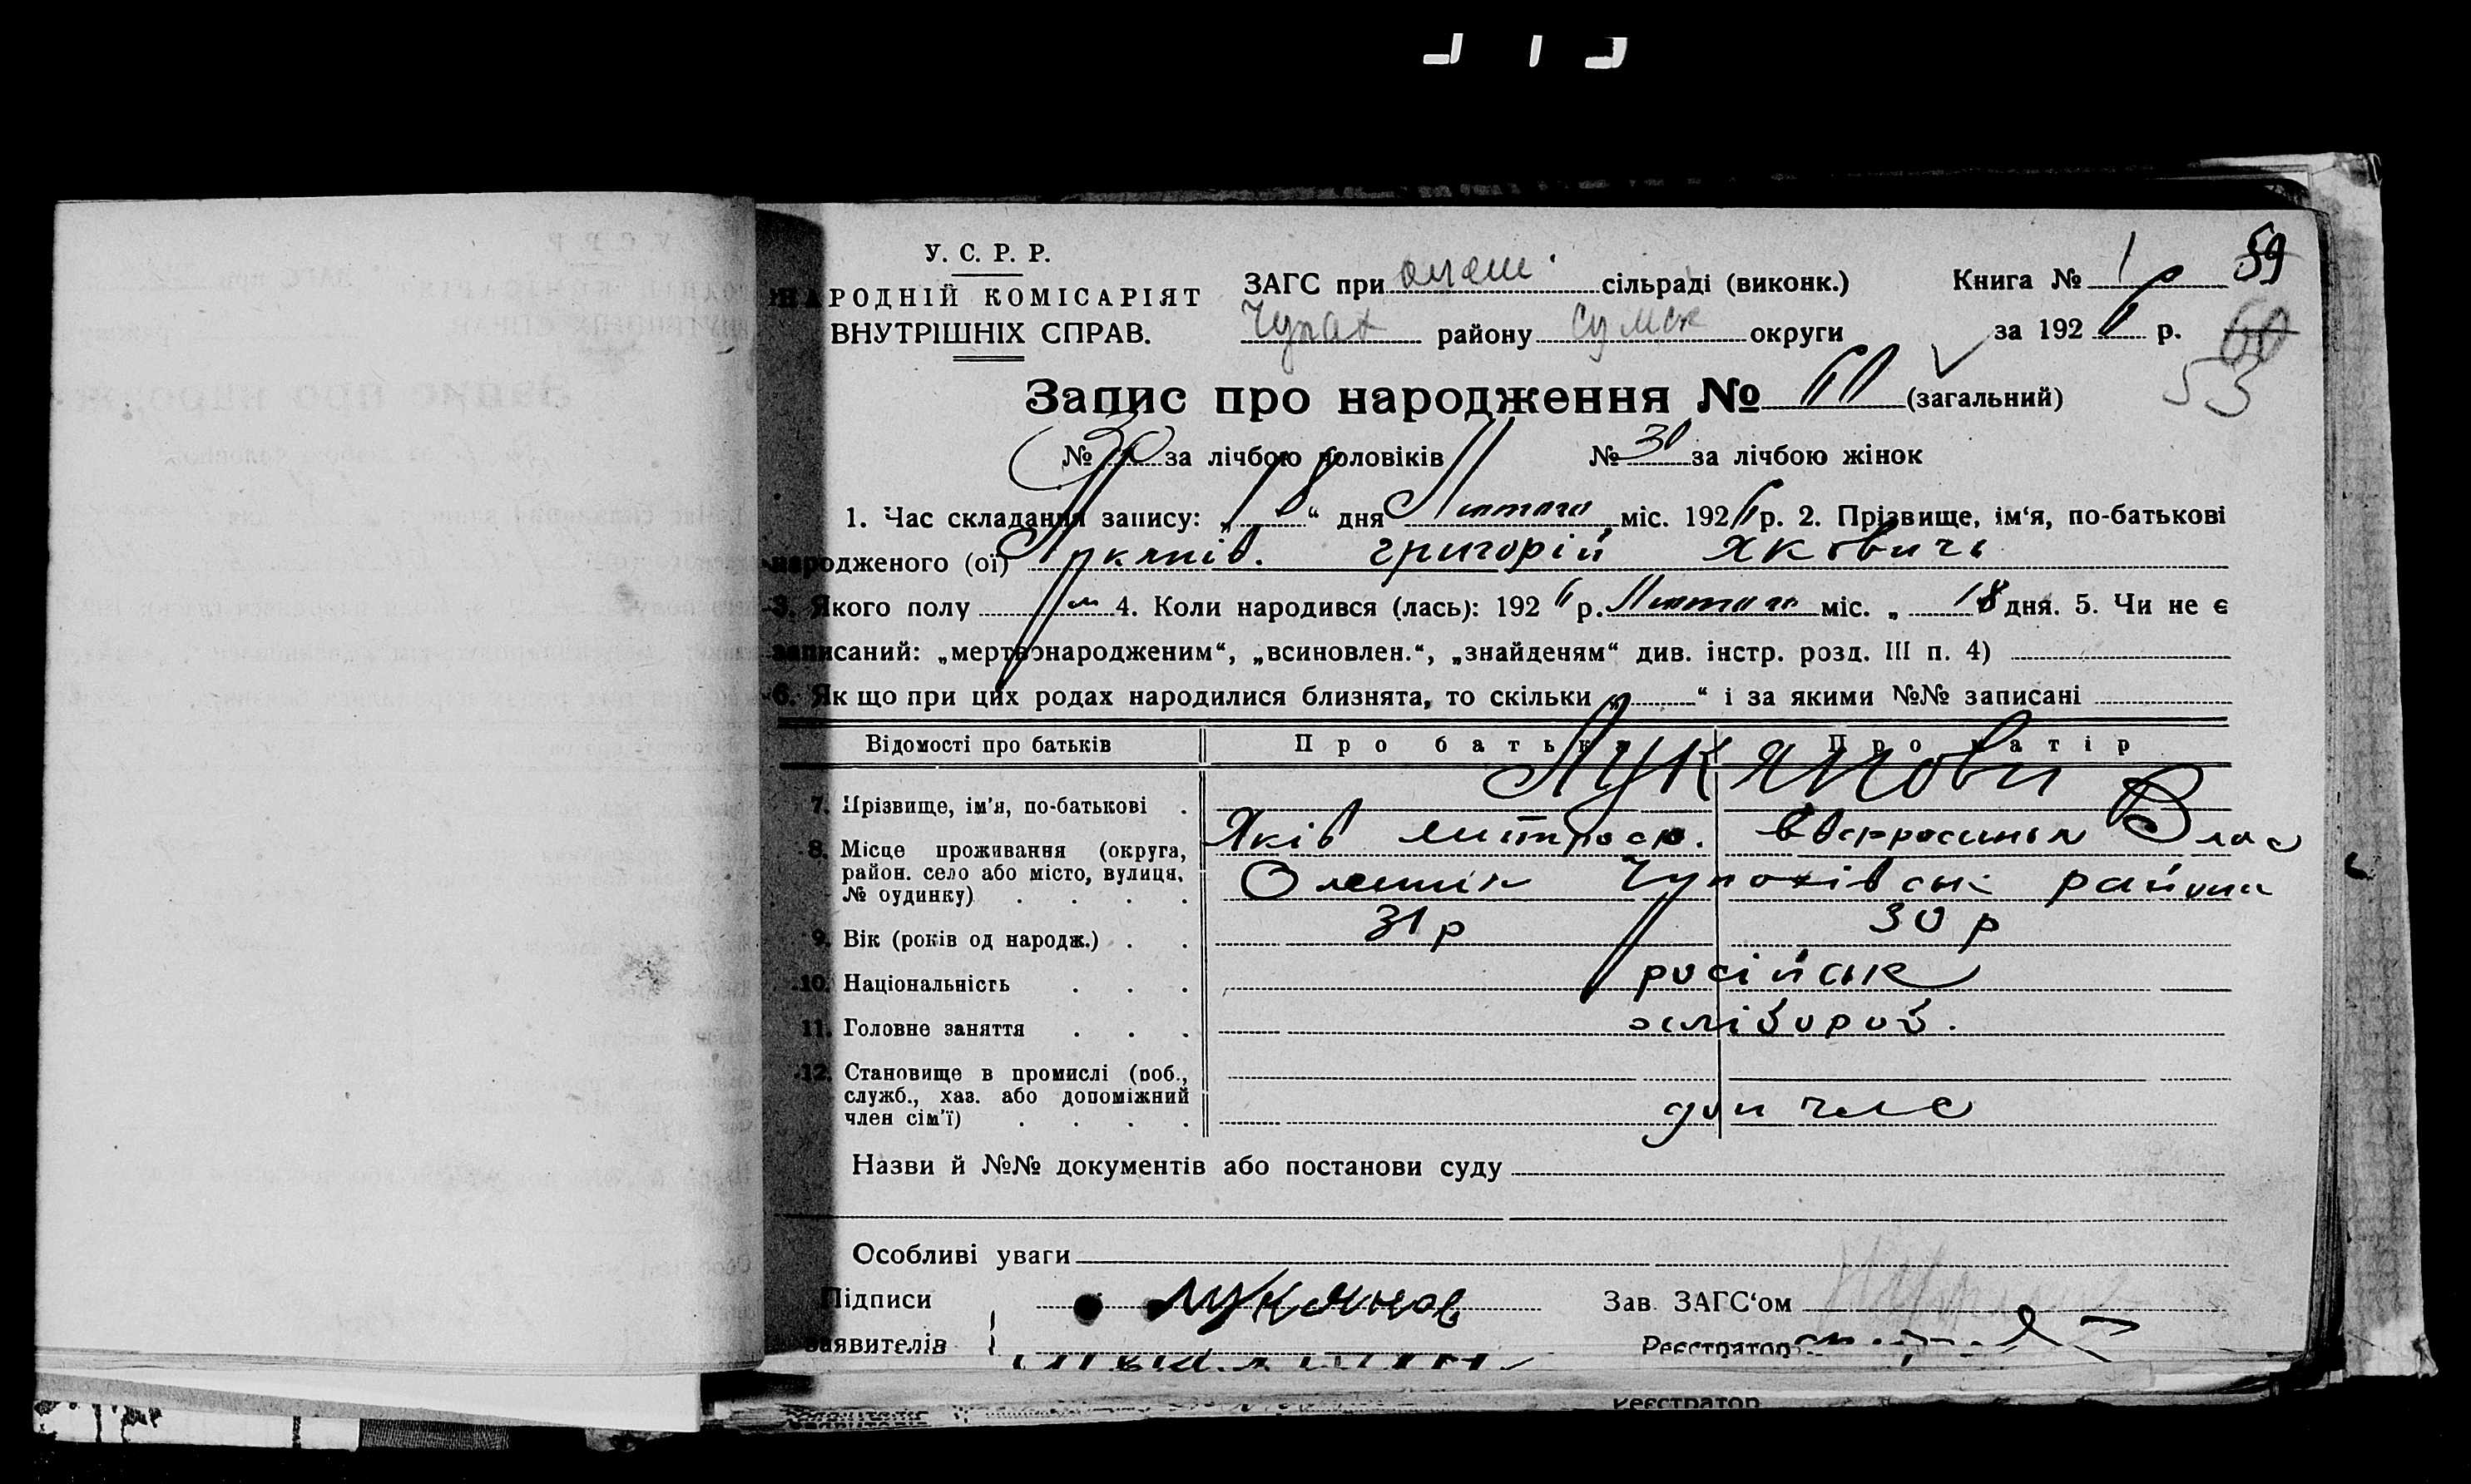 59
У. С. Р. Р.
НАРОДНІЙ КОМІСАРІЯТ
ВНУТРІШНІХ СПРАВ.
ЗАГС при олеш. сільраді (виконк.)
Чупах району Сумск округи
Книга № 1
за 1926 р.
60
53
Запис про народження № 60 (загальний)
№ 30 за лічбою чоловіків № 30 за лічбою жінок
1. Час складання запису: „18“ дня Лютого міс. 1926 р. 2. Прізвище, ім‘я, по-батькові
народженого (ої) Григорій Яковичь
3. Якого полу м 4. Коли народився (лась): 1926 р. Лютого міс. „ 18 дня. 5. Чи не є
записаний: „мертвонародженим“, „всиновлен.“, „знайденям“ див. інстр. розд. III п. 4)
6. Як що при цих родах народилися близнята, то скільки „ “ і за якими №№ записані
Відомості про батьків Про батька Про матір
Лукянови
7. Прізвище, ім'я, по-батькові .
Яків Влас
8. Місце проживання (округа,
район. село або місто, вулиця,
№ будинку) . . . .
Олешнік Чупахівськ района
9. Вік (років од народж.) . . 31 р 30 р
10. Національність . . . російськ
11. Головне заняття . . . хлібороб.
12. Становище в промислі (роб.,
служб., хаз. або допоміжний
член сім'ї) . . . .
Назви й №№ документів або постанови суду
Особливі уваги
Підписи Лукянов Зав. ЗАГС‘ом
заявителів Реєстратор
Реєстратор